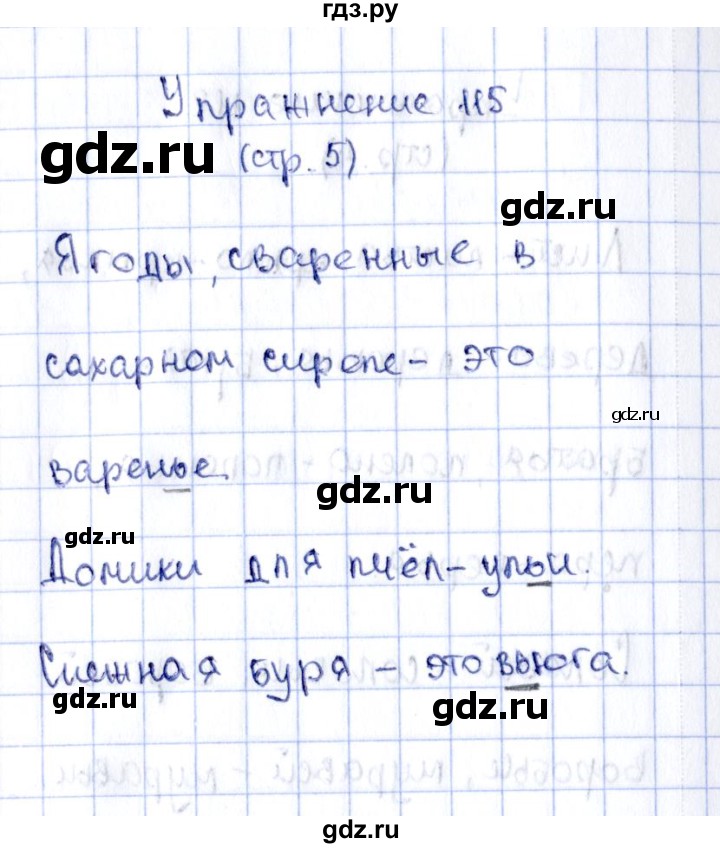 гдз.ру
Упражнение 115
gdz.ru
(стр. 5)
gdz.ru
Ягоды, сваренные в
сахарном сиропе - это
gdz.ru
варенье.
gdz.ru
gdz.ru
Домики для пчёл - ульи.
Снежная буря - это вьюга.
gdz.ru
gdz.ru
gdz.ru